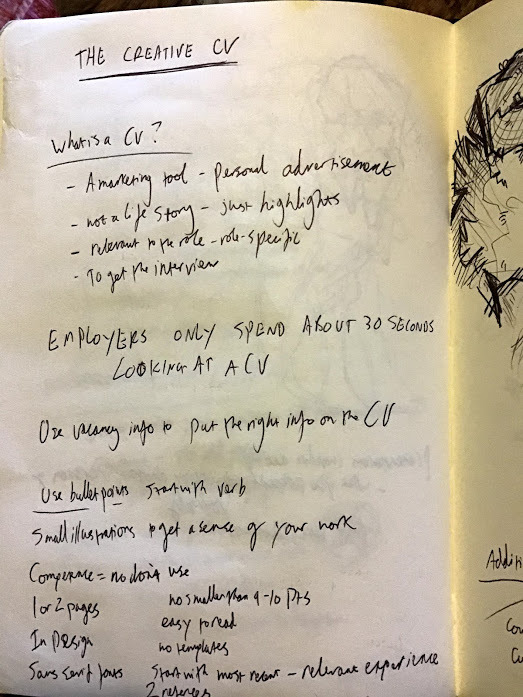 THE CREATIVE CV
What is a CV?
- A marketing tool - personal advertisement
- not a life story - just highlights
- relevant to the role - role-specific
- To get the interview
EMPLOYERS ONLY SPEND ABOUT 30 SECONDS
LOOKING AT A CV
Use vacancy info to put the right info on the CV
Use bullet points start with verb
Small illustrations to get a sense of your work
= no don't use
1 or 2 pages no smaller than 9-10 pts
easy to read
In Design no templates
Sans Serif fonts Start with most recent - relevant experience
2 references
Additi
Cou
Cu